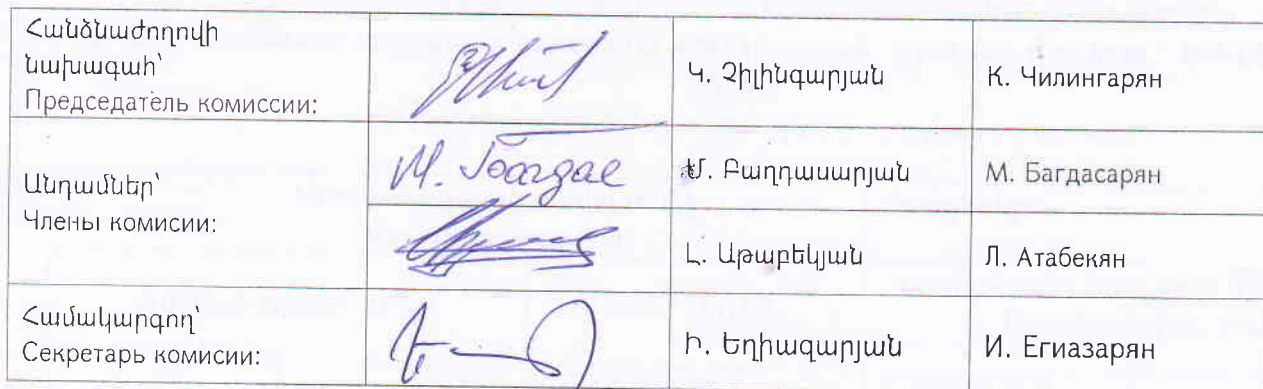 Հանձնաժողովի
նախագահ՝
Председатель комиссии:
Կ. Չիլինգարյան
К. Чилингарян
Անդամներ՝
Члены комисии:
Մ. Բաղդասարյան
М. Багдасарян
Լ. Աթաբեկյան
Л. Атабекян
Համակարգող՝
Секретарь комисии:
Ի. Եղիազարյան
И. Егиазарян